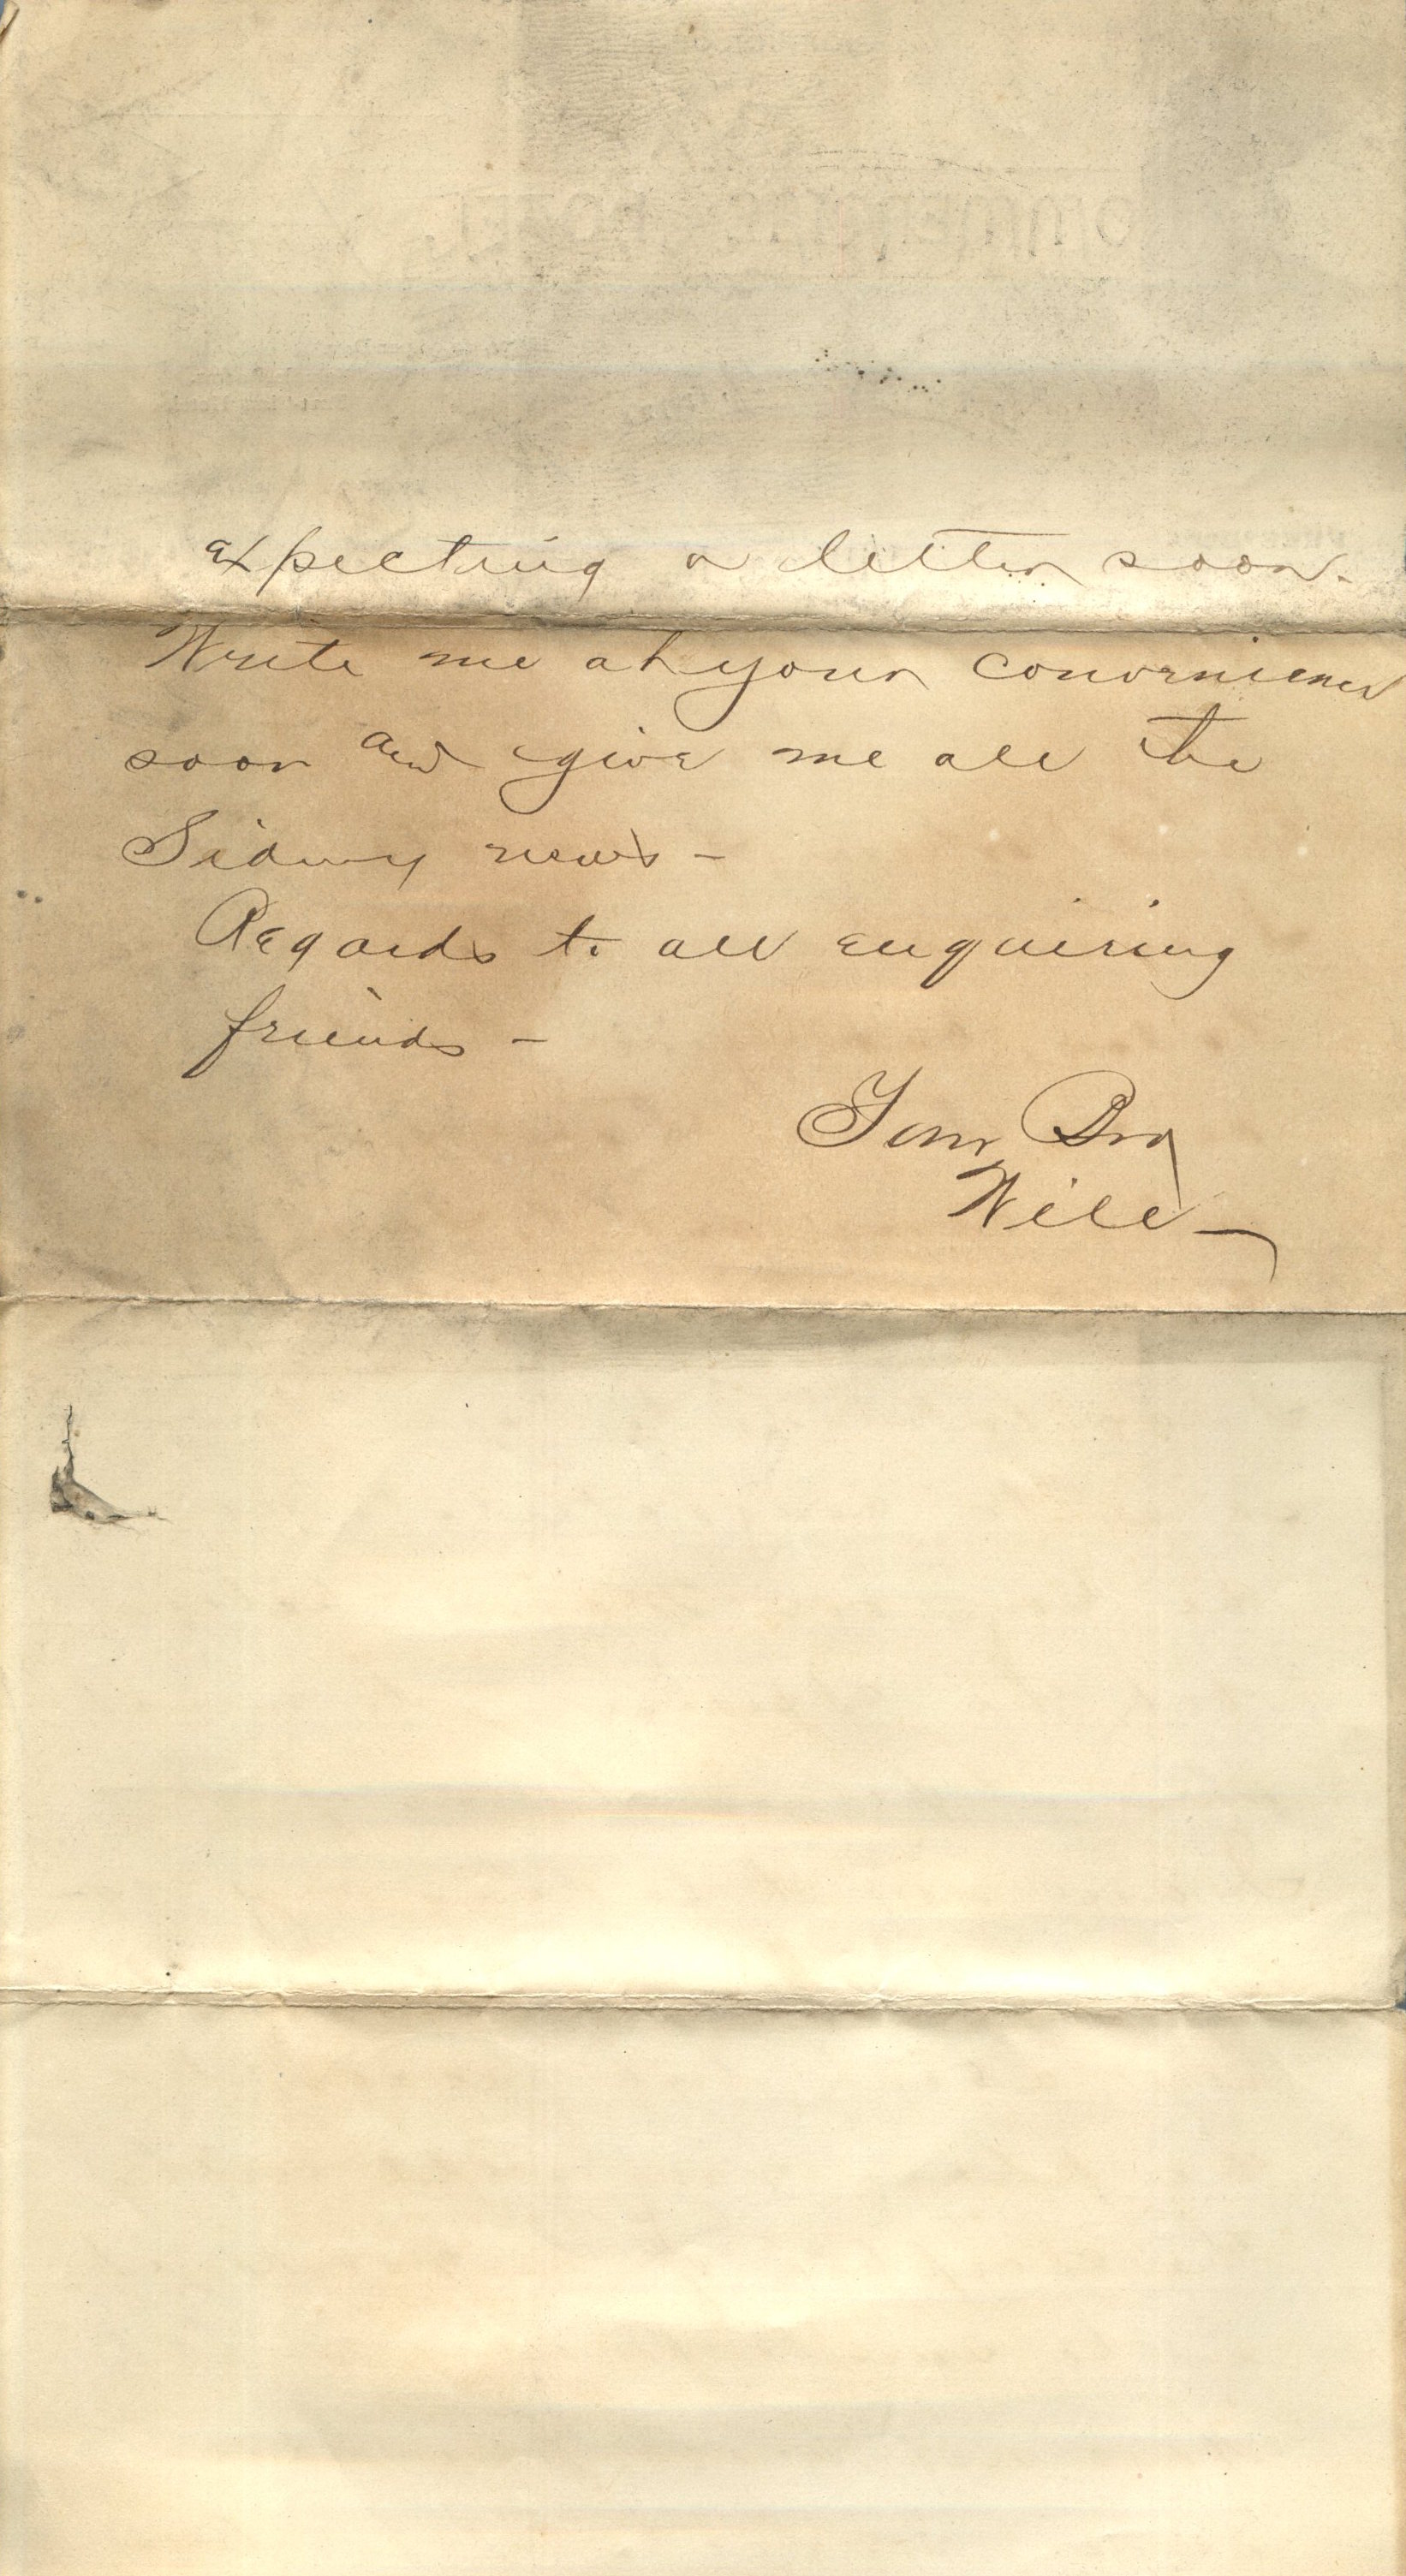 expecting a letter soon.
Write me at your convenience
soon and give me all the
Sidney news -
Regards to all enquiring
friends -
Your Bro
Will -